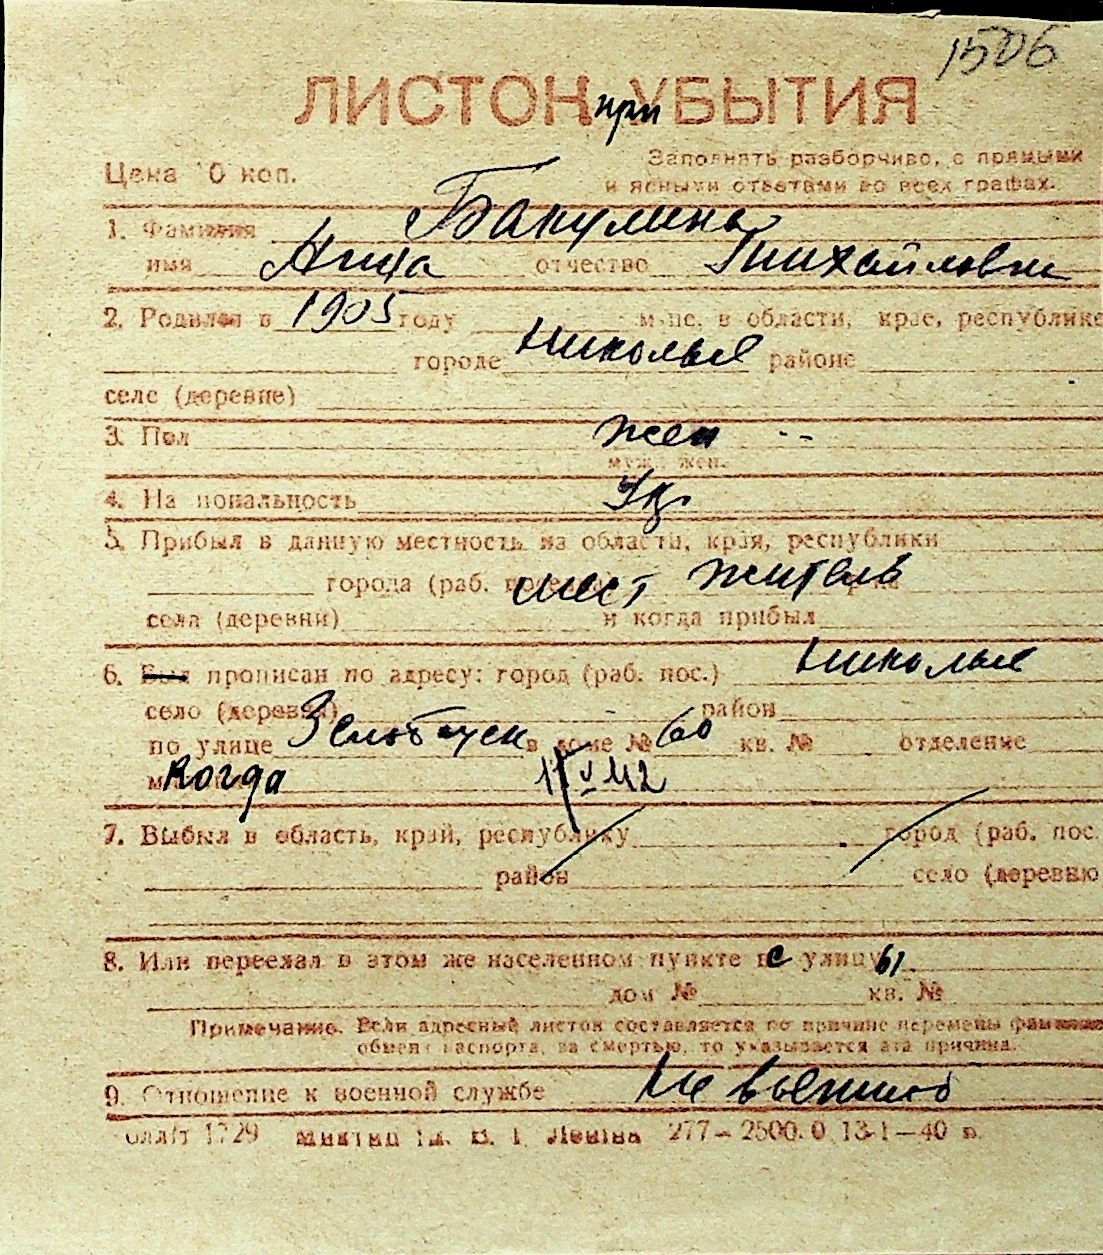 1506
ЛИСТОК при УБЫТИЯ
Цена 10 коп.
Заполнять разборчиво, с прямыми
и ясными ответами во всех графах.
1. Фамилия Бакулина
имя отчество Михайловн
2. Родился в 1905 году м-це, в области, крае, республике
городе районе
селе (деревне)
3. Пол жен
муж., жен.
4. Национальность
5. Прибыл в данную местность из области, края, республики
города (раб. мест житель
села (деревни) и когда прибыл
6. Был прописан по адресу: город (раб. пос.)
село (деревня) район
по улице в доме № 60 кв. № отделение
когда 42
7. Выбыл в область, край, республику город (раб. пос.
район село (деревню
8. Или переехал в этом же населенном пункте с улицы
дом № кв. №
Примечание. Если адресный листок составляется по причине перемены фамилии
обмена паспорта, за смертью, то указывается эта причина.
9. Отношение к военной службе не
1729 277—2500.0 13-1—40 г.